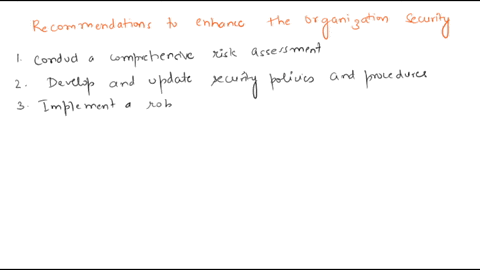 Recommendations to enhance the organization security
1. Conduct a comprehensive risk assessment
2. Develop and update security policies and procedures
3. Implement a rob